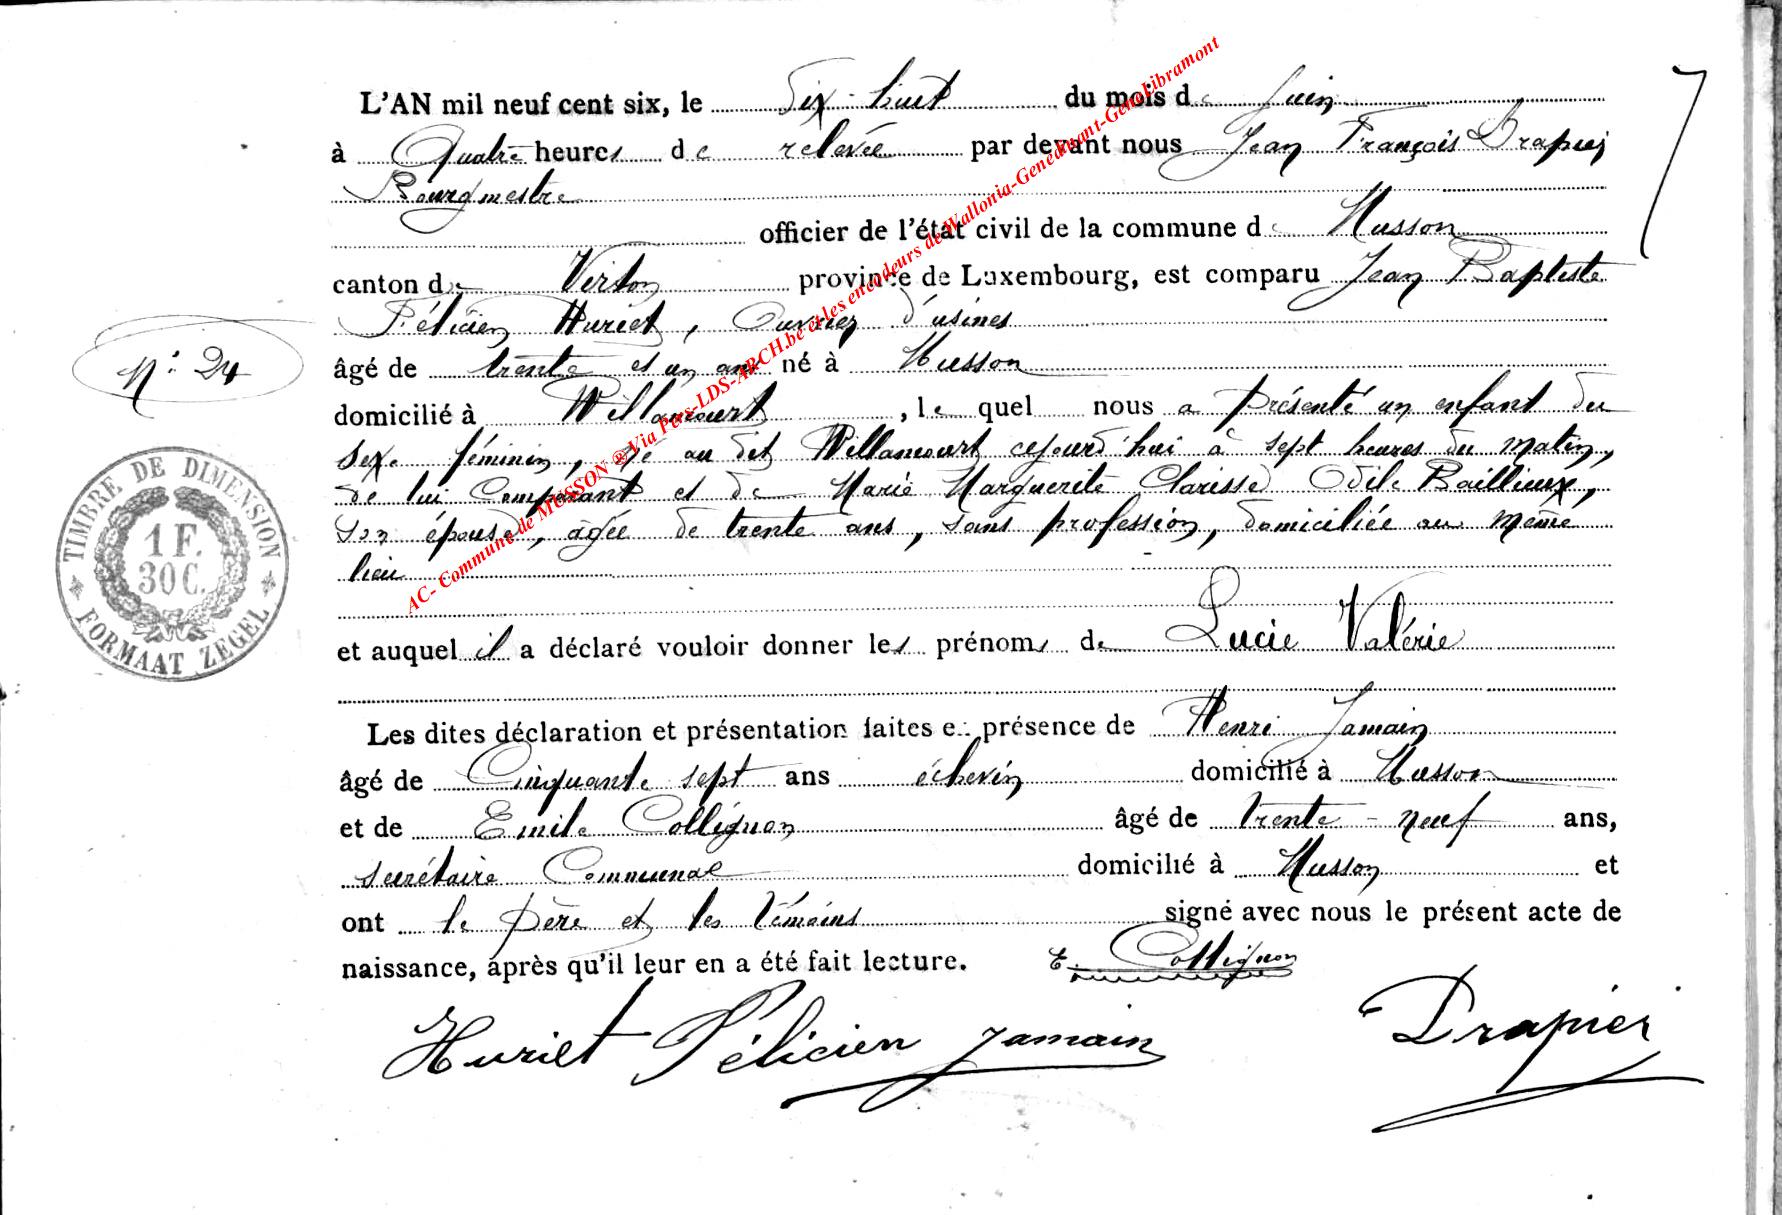 L'AN mil neuf cent six, le dix-huit du mois de Juin
à Quatre heures de relevée par devant nous Jean François Drapier
Bourgmestre
officier de l'état civil de la commune de Musson
canton de Virton province de Luxembourg, est comparu Jean Baptiste
Félicien Huriet, Ouvrier d'usines
âgé de trente et un ans né à Musson
N° 24
domicilié à Willancourt, lequel nous a présenté un enfant du
sexe féminin, né au dit Willancourt cejourd'hui à sept heures du matin,
de lui Comparant et de Marie Marguerite Clarisse Odile Baillieux,
son épouse, agée de trente ans, sans profession, domiciliée au même
lieu
TIMBRE DE DIMENSION
1 F.
30 C.
FORMAAT ZEGEL
et auquel il a déclaré vouloir donner les prénoms de Lucie Valérie
Les dites déclaration et présentation faites en présence de Henri Jamain
âgé de Cinquante sept ans échevin domicilié à Musson
et de Emile Collignon âgé de trente-neuf ans,
secrétaire Communal domicilié à Musson et
ont le père et les témoins signé avec nous le présent acte de
naissance, après qu'il leur en a été fait lecture. E. Collignon
Huriet Félicien Jamain Drapier
AC- Commune de MUSSON ® Via Pers-LDS-ARCH.be et les encodeurs de Wallonia-Genealuxant-GeneLibramont